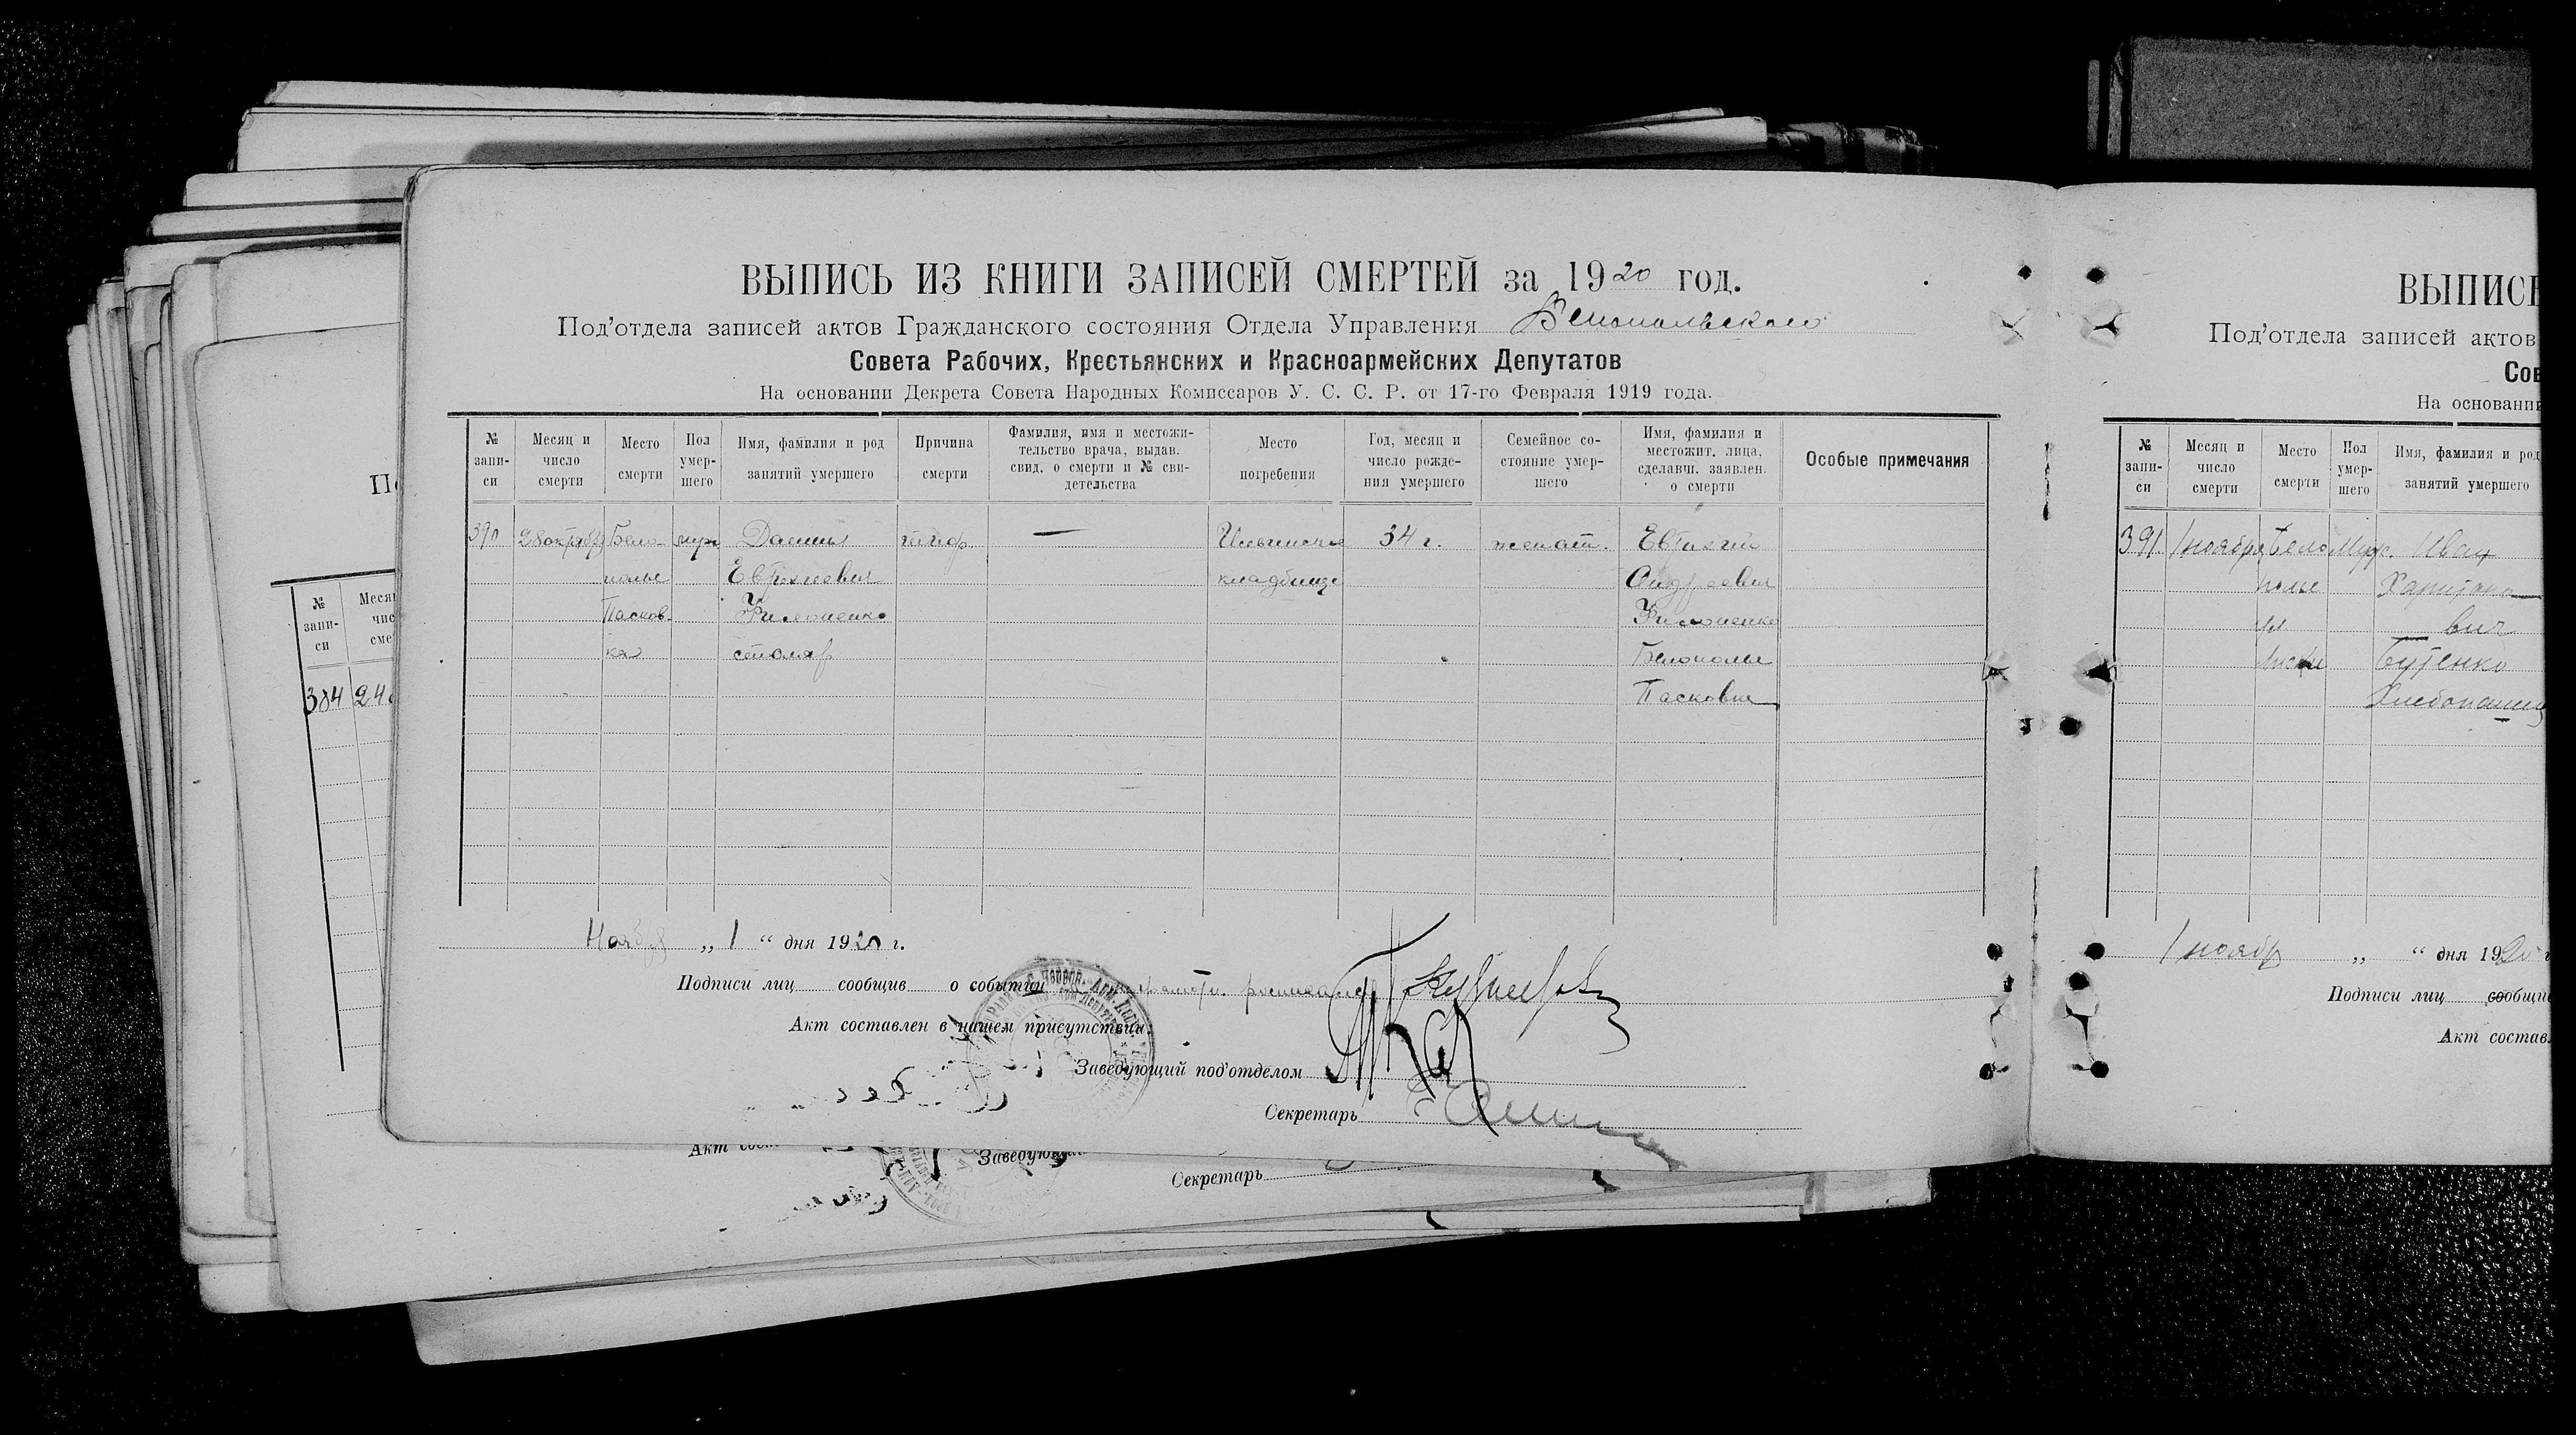 ВЫПИСЬ ИЗ КНИГИ ЗАПИСЕЙ СМЕРТЕЙ за 1920 год.
Под'отдела записей актов Гражданского состояния Отдела Управления Белопольского
Совета Рабочих, Крестьянских и Красноармейских Депутатов
На основании Декрета Совета Народных Комиссаров У. С. С. Р. от 17-го Февраля 1919 года.
№ запи- си
Месяц и число смерти
Место смерти
Пол умер- шего
Имя, фамилия и род занятий умершего
Причина смерти
Фамилия, имя и местожи- тельство врача, выдав. свид. о смерти и № сви- детельства
Место погребения
Год, месяц и число рожде- ния умершего
Семейное со- стояние умер- шего
Имя, фамилия и местожит. лица, сделавш. заявлен. о смерти
Особые примечания
390 28 октября Бело- муж Даниил тиф. — Ильинское 34 г. женат. Евтихий
полье Евтихиевич кладбище Андреевич
Пасков- Филоненко Филоненко
ка столяр Белополье
Пасковка
Ноября „ 1 “ дня 1920 г.
Подписи лиц сообщив о событии
Акт составлен в нашем присутствии:
Заведующий под'отделом
Секретарь
Акт
Заведующ
Секретарь
По
№ запи- си
Меся чис сме
384 24
ВЫПИСЬ
Под'отдела записей актов
Сов
На основании
№ запи- си
Месяц и число смерти
Место смерти
Пол умер- шего
Имя, фамилия и род занятий умершего
391. 1 ноября Бело Муж. Иван
полье Харитоно
вич
Бутенко
Хлебопашец
1 ноябр „ “ дня 1920 г
Подписи лиц сообщи
Акт состав